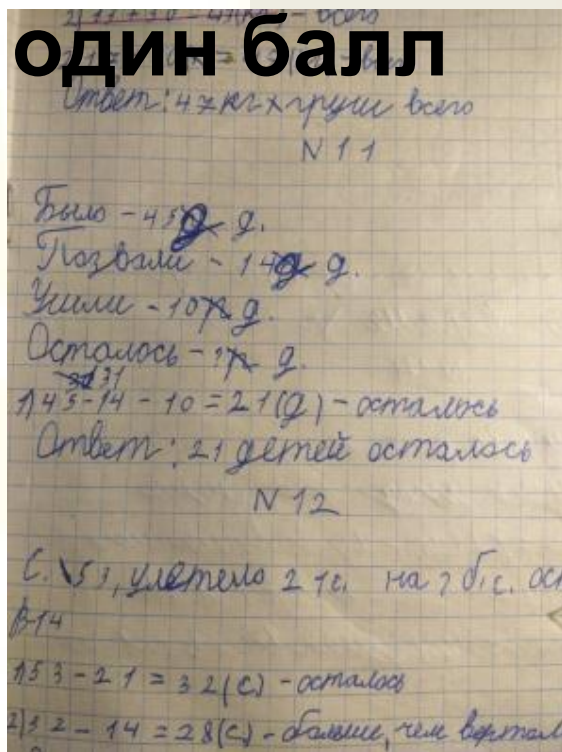 один балл
Ответ: 47 кг х груш всего
N 11
Было - 45 д.
Позвали - 14 д.
Ушли - 10 д.
Осталось - ? д.
31
1) 45-14-10=21(д) - осталось
Ответ: 21 детей осталось
N 12
С. 53, улетело 21с. на ? б.с. ост
В-14
1) 53-21=32(с) - осталось
2) 32-14=28(с) - больше, чем